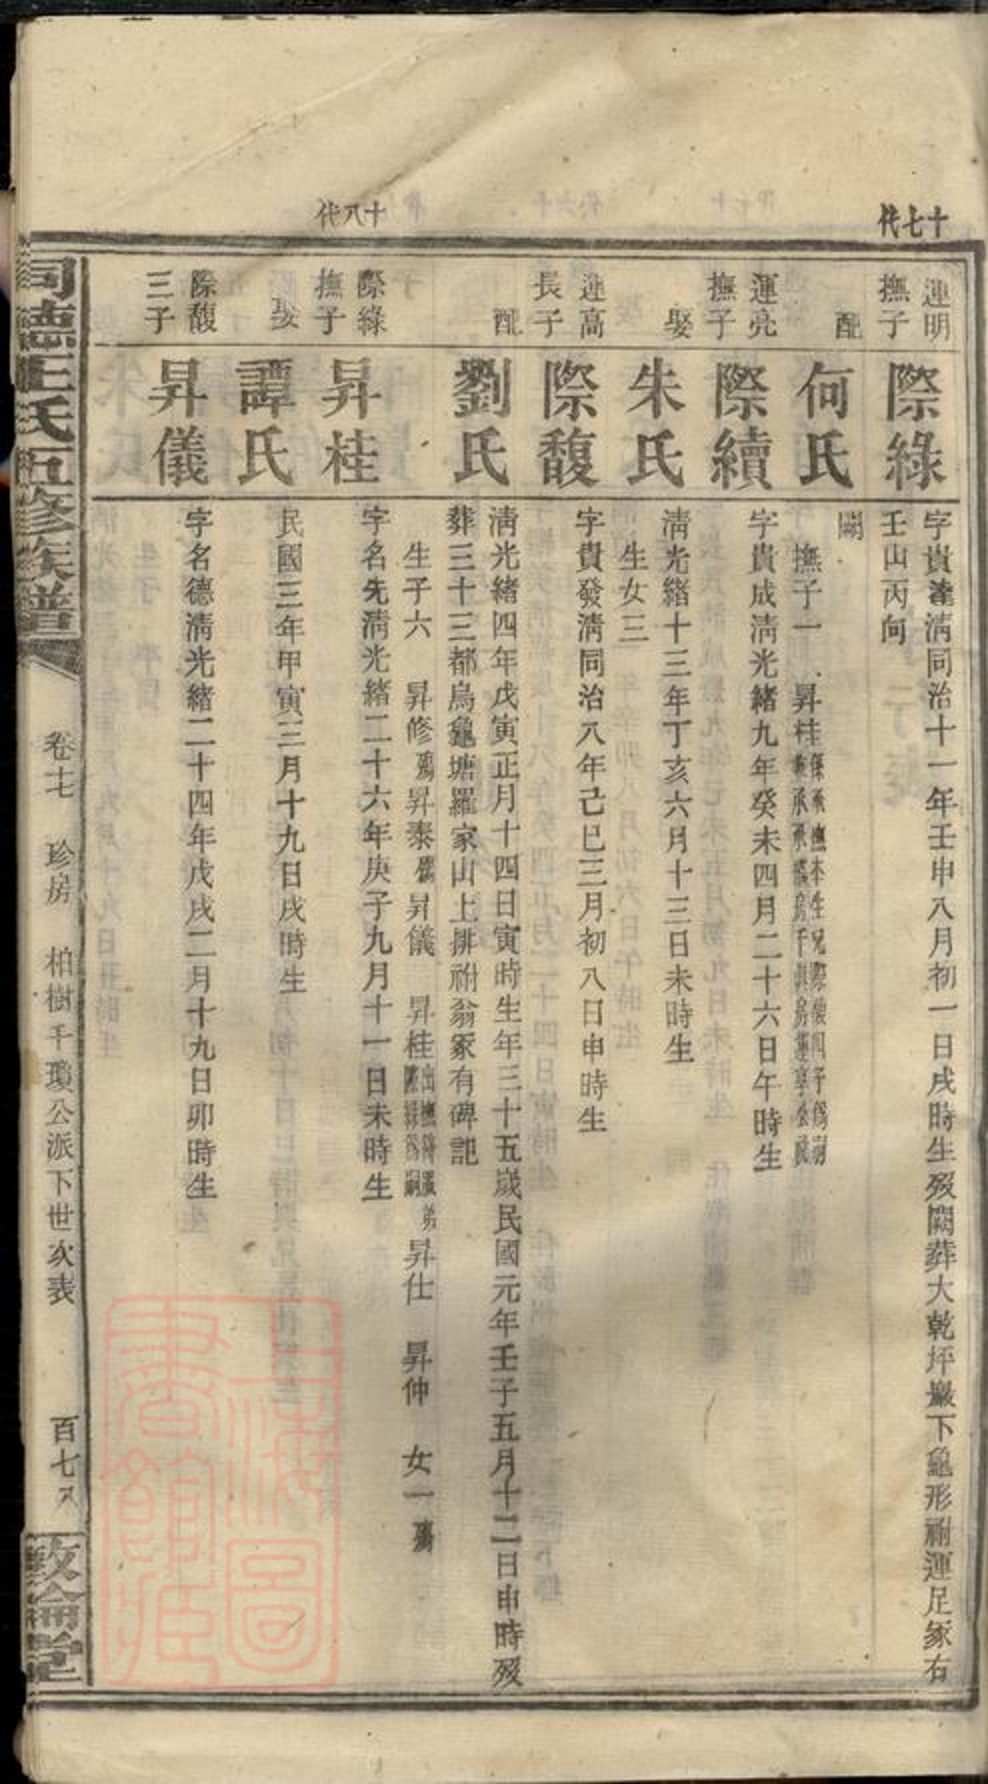 十七代
運明
撫子
際綠
字貴達淸同治十一年壬申八月初一日戌時生歿闕葬大乾坪巖下龜形祔運足冢右
壬山丙向
配
何氏
闕
撫子一 昇桂
運亮
撫子
際續
字貴成淸光緒九年癸未四月二十六日午時生
娶
朱氏
淸光緒十三年丁亥六月十三日未時生
生女三
運高
長子
際馥
字貴發淸同治八年己巳三月初八日申時生
配
劉氏
淸光緒四年戊寅正月十四日寅時生年三十五歲民國元年壬子五月十二日申時歿
葬三十三都烏龜塘羅家山上排祔翁冢有碑記
生子六 昇修殤昇泰殤昇儀 昇桂出撫際綠爲嗣昇仕 昇仲 女一殤
十八代
際綠
撫子
昇桂
字名先淸光緒二十六年庚子九月十一日未時生
娶
譚氏
民國三年甲寅三月十九日戌時生
際馥
三子
昇儀
字名德淸光緒二十四年戊戌二月十九日卯時生
同德王氏五修族譜
卷七 珍房 柏樹千瓊公派下世次表
百七八
敦倫堂
上海圖書館藏